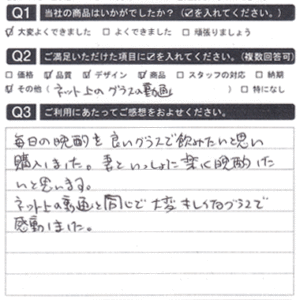 Q1 当社の商品はいかがでしたか？（☑を入れてください。）
☑大変よくできました □よくできました □頑張りましょう
Q2 ご満足いただけた項目に☑を入れてください。（複数回答可）
□価格 ☑品質 ☑デザイン ☑商品 □スタッフの対応 □納期
☑その他（ネット上のグラスの動画） □特になし
Q3 ご利用にあたってご感想をおよせください。
毎日の晩酌を良いグラスで飲みたいと思い
購入しました。妻といっしょに楽しく晩酌した
いと思います。
ネット上の動画と同じで大変キレイなグラスで
感動しました。